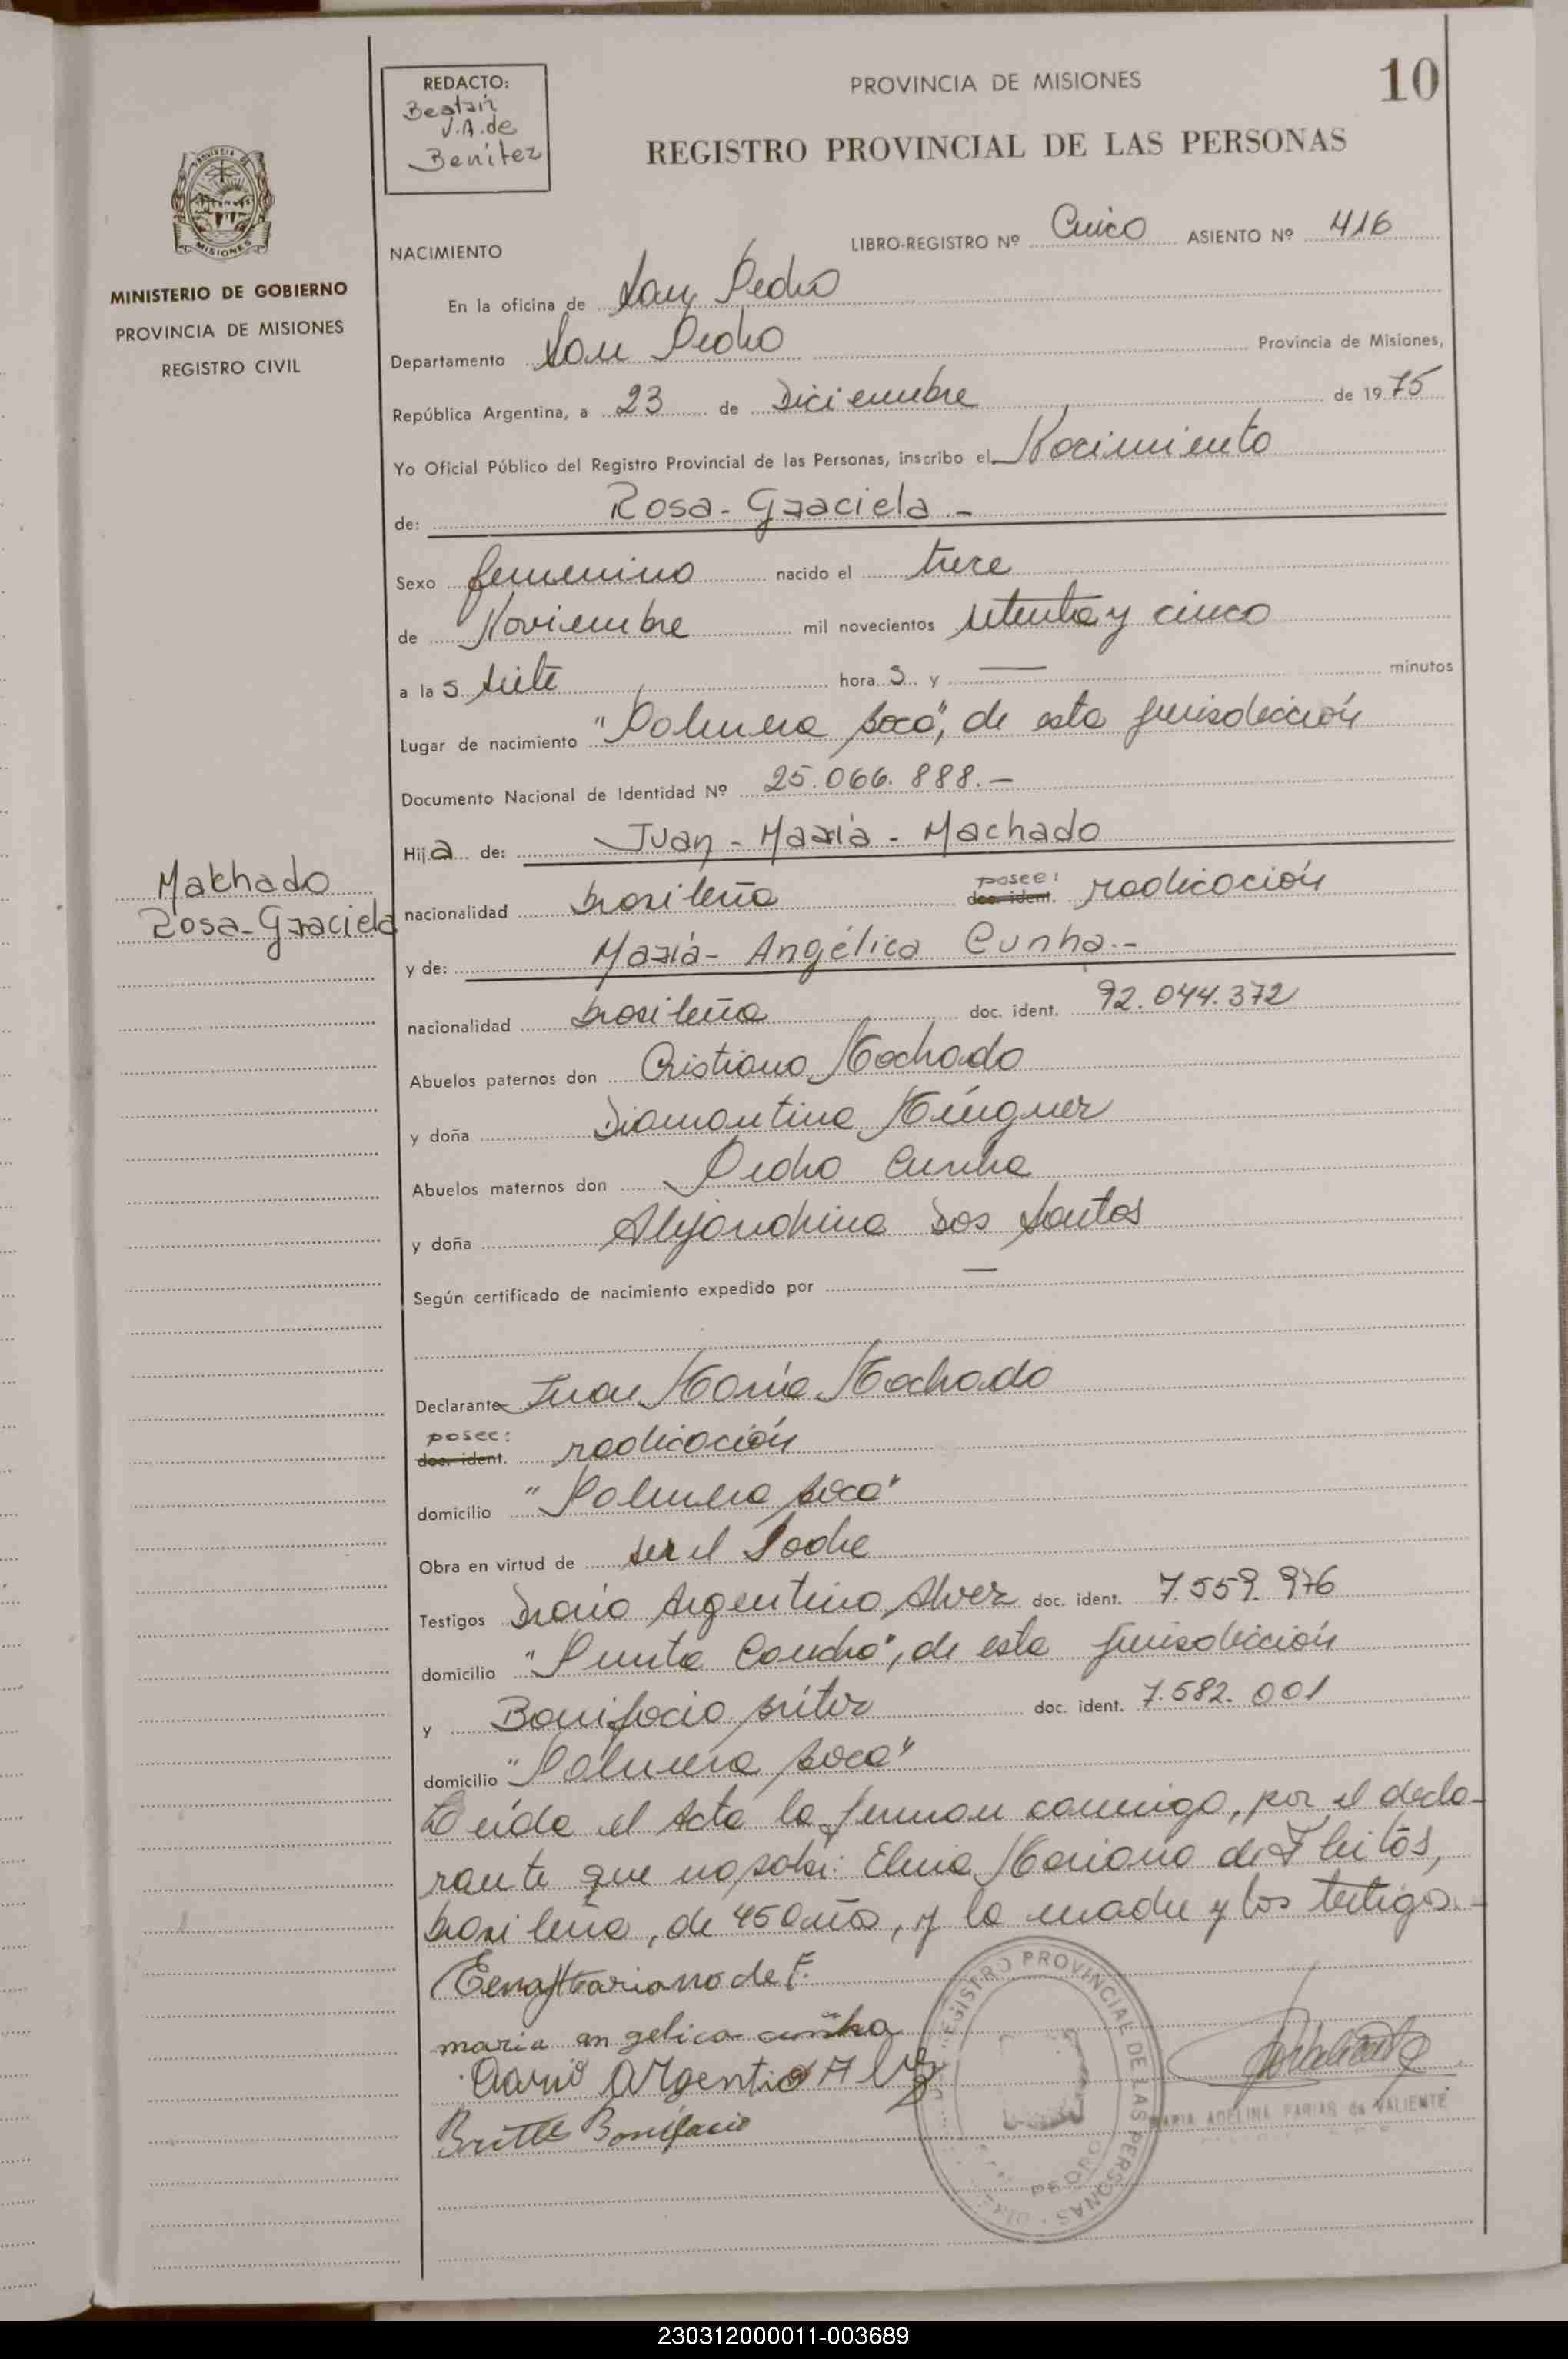 10
REDACTO:
Beatriz
V.A. de
Benitez
PROVINCIA DE MISIONES
REGISTRO PROVINCIAL DE LAS PERSONAS
PROVINCIA DE
MISIONES
MINISTERIO DE GOBIERNO
PROVINCIA DE MISIONES
REGISTRO CIVIL
NACIMIENTO
LIBRO-REGISTRO Nº Cinco ASIENTO Nº 416
En la oficina de San Pedro
Departamento San Pedro Provincia de Misiones,
República Argentina, a 23 de Diciembre de 1975
Yo Oficial Público del Registro Provincial de las Personas, inscribo el Nacimiento
de: Rosa - Graciela -
Sexo femenino nacido el trece
de Noviembre mil novecientos setenta y cinco
a las siete horas y — minutos
Lugar de nacimiento "Palmera boca", de esta jurisdicción
Documento Nacional de Identidad Nº 25.066.888.-
Hija de: Juan - María - Machado
Machado
Rosa-Graciela
nacionalidad brasileña posee: doc. ident. radicación
y de: María - Angélica Cunha.-
nacionalidad brasileña doc. ident. 92.044.372
Abuelos paternos don Cristiano Machado
y doña Diamantina
Abuelos maternos don Pedro Cunha
y doña Alejandrina Dos Santos
Según certificado de nacimiento expedido por —
Declarante Juan María Machado
posee:
doc. ident. radicación
domicilio "Palmera boca"
Obra en virtud de ser el Padre
Testigos Darío Argentino Alvez doc. ident. 7.559.976
domicilio "Punta Cancha", de esta jurisdicción
y Bonifacio Britez doc. ident. 7.582.001
domicilio "Palmera boca"
Leída el Acta la firman conmigo, por el decla-
rante que no sabe: Elena Mariano de Fleitas,
brasileña, de 45 años, y la madre y los testigos.-
Elena Mariano de F.
maria angelica cunha
Dario Argentio Alvez
Britte Bonifacio
REGISTRO PROVINCIAL DE LAS PERSONAS
PEDRO
MARIA ADELINA FARIAS de VALIENTE
230312000011-003689